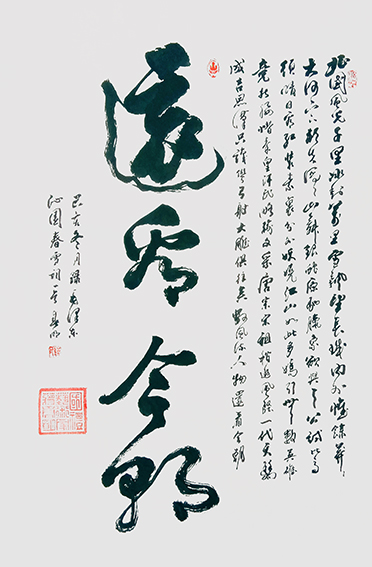 北國風光千里冰封萬里雪飄望長城內外惟餘莽〻
大河上下頓失滔〻山舞銀蛇原馳臘象欲與天公試比高
須晴日看紅裝素裹分外妖嬈江山如此多嬌引無數英雄
竟折腰惜秦皇漢武略輸文采唐宗宋祖稍遜風騷一代天驕
成吉思漢只識彎弓射大雕俱往矣數風流人物還看今朝
還看今朝
己亥冬月錄毛澤東
沁園春雪詞